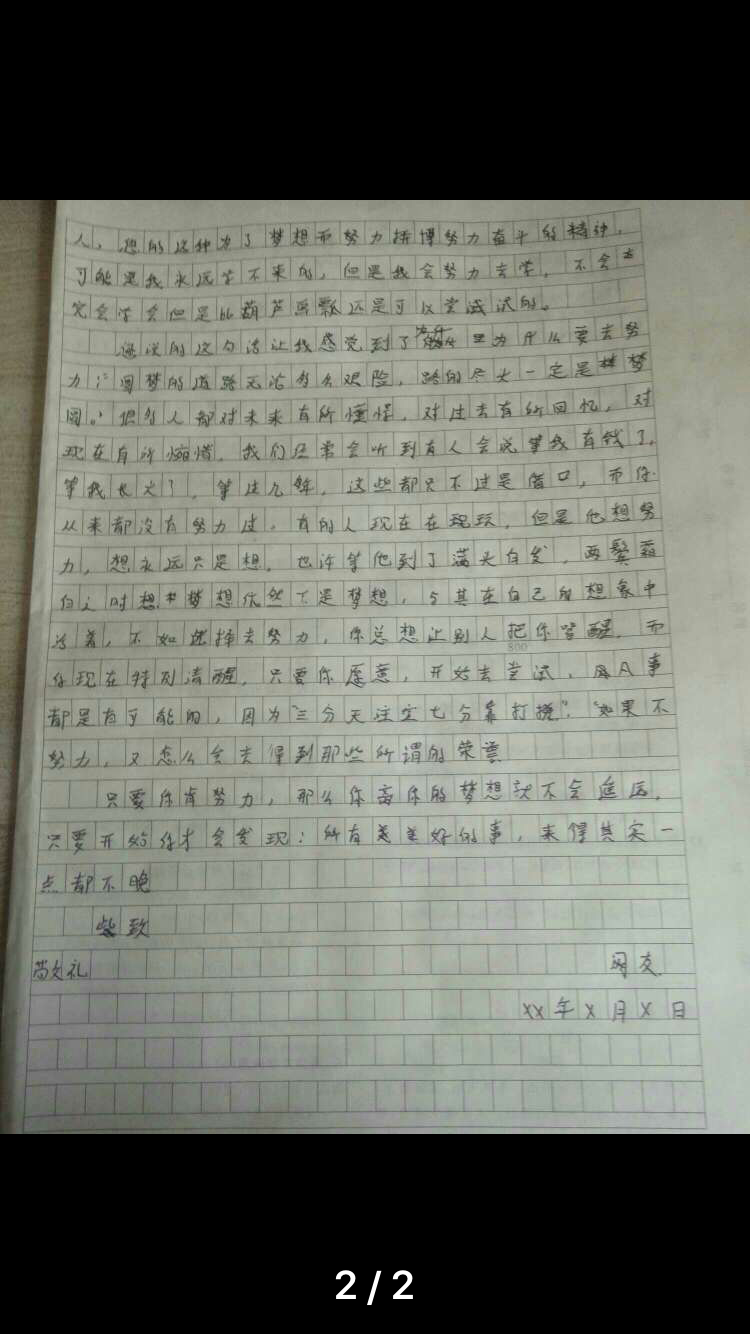 人，您的这种为了梦想而努力拼博努力奋斗的精神，
可能是我永远学不来的，但是我会努力去学，不会
完会学会但是比葫芦画瓢还是可以尝试试的。
您说的这句话让我感觉到了 为什么要去努
力："圆梦的道路无论多么艰险，路的尽头一定是梦
圆。"很多人都对未来有所憧憬，对过去有所回忆，对
现在有所惋惜，我们经常会听到有人会说等我有钱了，
等我长大了，等过几年，这些都只不过是借口，而你
从来都没有努力过，有的人现在在现玩，但是他想努
力，想永远只是想，也许等他到了满头白发，两鬓霜
白之时想梦想依然不是梦想，与其在自己的想象中
活着，不如选择去努力，你总想让别人把你叫醒，而
你现在特别清醒，只要你愿意，开始去尝试，凡事
都是有可能的，因为"三分天注定七分靠打拼"，如果不
努力，又怎么会去得到那些所谓的荣誉
只要你肯努力，那么你离你的梦想就不会遥远，
只要开始你才会发现：所有美好的事，来得其实一
点都不晚
800
此致
敬礼
网友
XX年X月X日
2/2